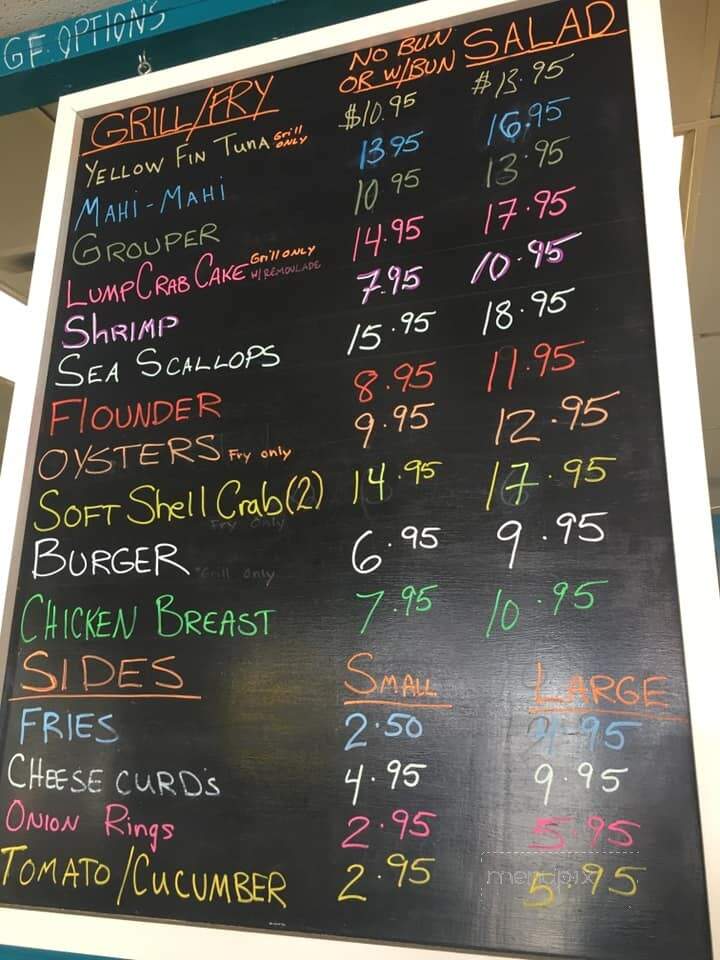 GF OPTIONS
GRILL/FRY NO BUN OR W/BUN SALAD
YELLOW FIN TUNA Grill ONLY $10.95 $13.95
MAHI-MAHI 13 95 16.95
GROUPER 10 95 13.95
LUMP CRAB CAKE Grill ONLY W/REMOULADE 14.95 17.95
SHRIMP 7.95 10.95
SEA SCALLOPS 15.95 18.95
FLOUNDER 8.95 11.95
OYSTERS Fry only 9.95 12.95
SOFT Shell Crab (2) 14.95 17.95
Fry Only
BURGER 6.95 9.95
*Grill Only
CHICKEN BREAST 7.95 10.95
SIDES SMALL LARGE
FRIES 2.50 4.95
CHEESE CURD's 4.95 9.95
ONION Rings 2.95 5.95
TOMATO/CUCUMBER 2.95 5.95
menupix